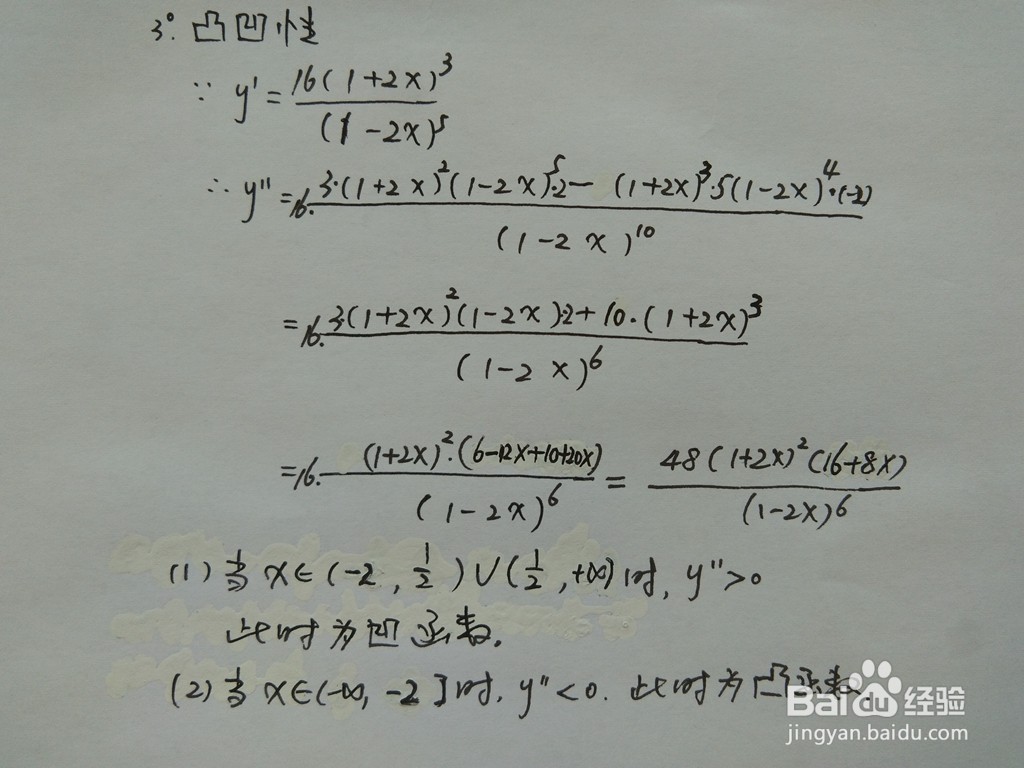 3°. 凸凹性
∵ y' = 16(1+2x)³ / (1-2x)⁵
∴ y'' = 16· 3·(1+2x)²(1-2x)⁵·2 - (1+2x)³·5(1-2x)⁴·(-2) / (1-2x)¹⁰
= 16· 3(1+2x)²(1-2x)·2+10·(1+2x)³ / (1-2x)⁶
= 16· (1+2x)²·(6-12x+10+20x) / (1-2x)⁶ = 48(1+2x)²(16+8x) / (1-2x)⁶
(1) 当 x∈(-2, 1/2)∪(1/2, +∞)时, y''>0
此时为凹函数.
(2) 当 x∈(-∞, -2]时, y''<0. 此时为凸函数
Baidu 经验
jingyan.baidu.com